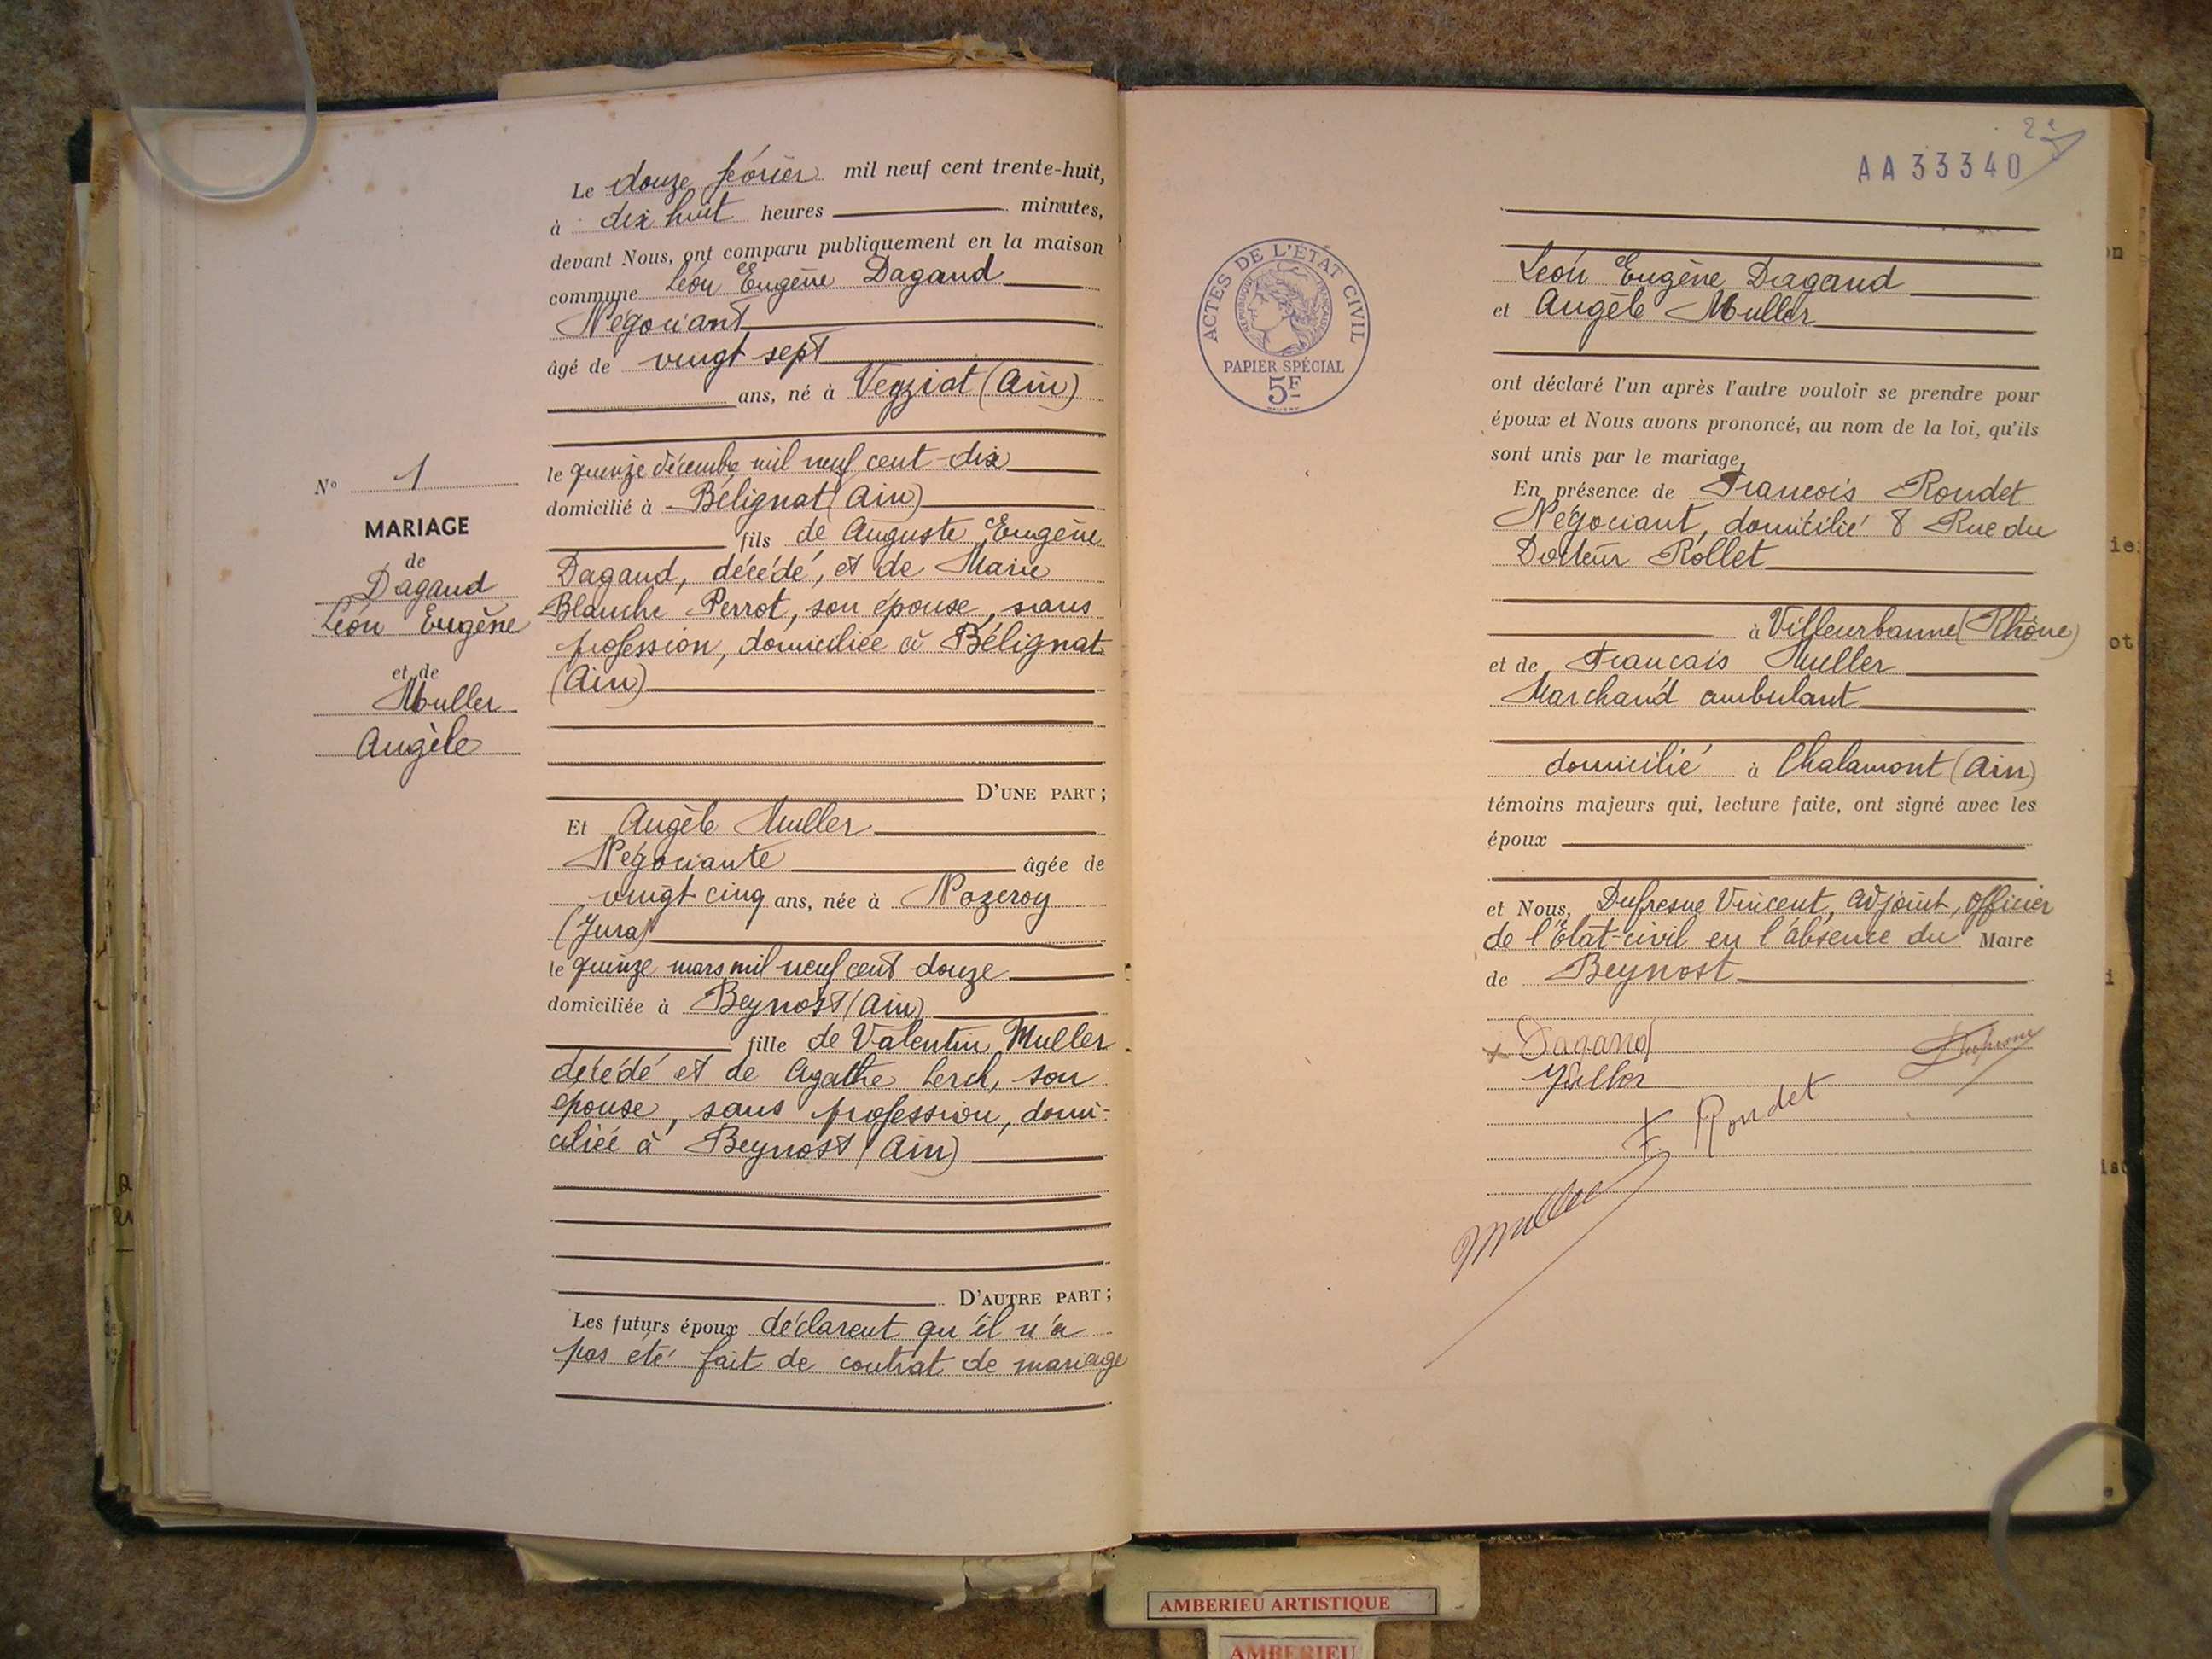 Le douze février mil neuf cent trente-huit,
à dix huit heures minutes,
devant Nous, ont comparu publiquement en la maison
commune Léon Eugène Dagand
Négociant
âgé de vingt sept
ans, né à Veyziat (Ain)
le quinze décembre mil neuf cent dix
domicilié à Bélignat (Ain)
fils de Auguste Eugène
Dagand, décédé, et de Marie
Blanche Perrot, son épouse, sans
profession, domiciliée à Bélignat
(Ain)
D'UNE PART;
Et Angèle Muller
Négociante âgée de
vingt cinq ans, née à Nozeroy
(Jura)
le quinze mars mil neuf cent douze
domiciliée à Beynost (Ain)
fille de Valentin Muller
décédé et de Agathe Lerch, son
épouse, sans profession, domi-
ciliée à Beynost (Ain)
D'AUTRE PART;
Les futurs époux déclarent qu'il n'a
pas été fait de contrat de mariage
N° 1
MARIAGE
de
Dagand
Léon Eugène
et de
Muller
Angèle
2e
AA33340
ACTES DE L'ÉTAT CIVIL
RÉPUBLIQUE FRANÇAISE
PAPIER SPÉCIAL
5F
Léon Eugène Dagand
et Angèle Muller
ont déclaré l'un après l'autre vouloir se prendre pour
époux et Nous avons prononcé, au nom de la loi, qu'ils
sont unis par le mariage,
En présence de Francois Rondet
Négociant, domicilié 8 Rue du
Docteur Rollet
à Villeurbanne (Rhône)
et de Francais Muller
Marchand ambulant
domicilié à Chalamont (Ain)
témoins majeurs qui, lecture faite, ont signé avec les
époux
et Nous, Dufresne Vincent, adjoint, officier
de l'Etat-civil en l'absence du Maire
de Beynost
Dagand
Dufresne
Muller
F. Rondet
Muller
AMBERIEU ARTISTIQUE
AMBERIEU